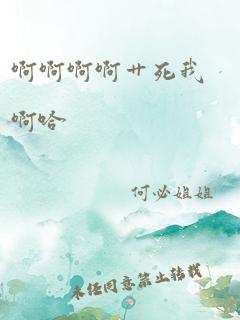 啊啊啊啊艹死我
啊哈
何必姐姐
未经同意禁止转载